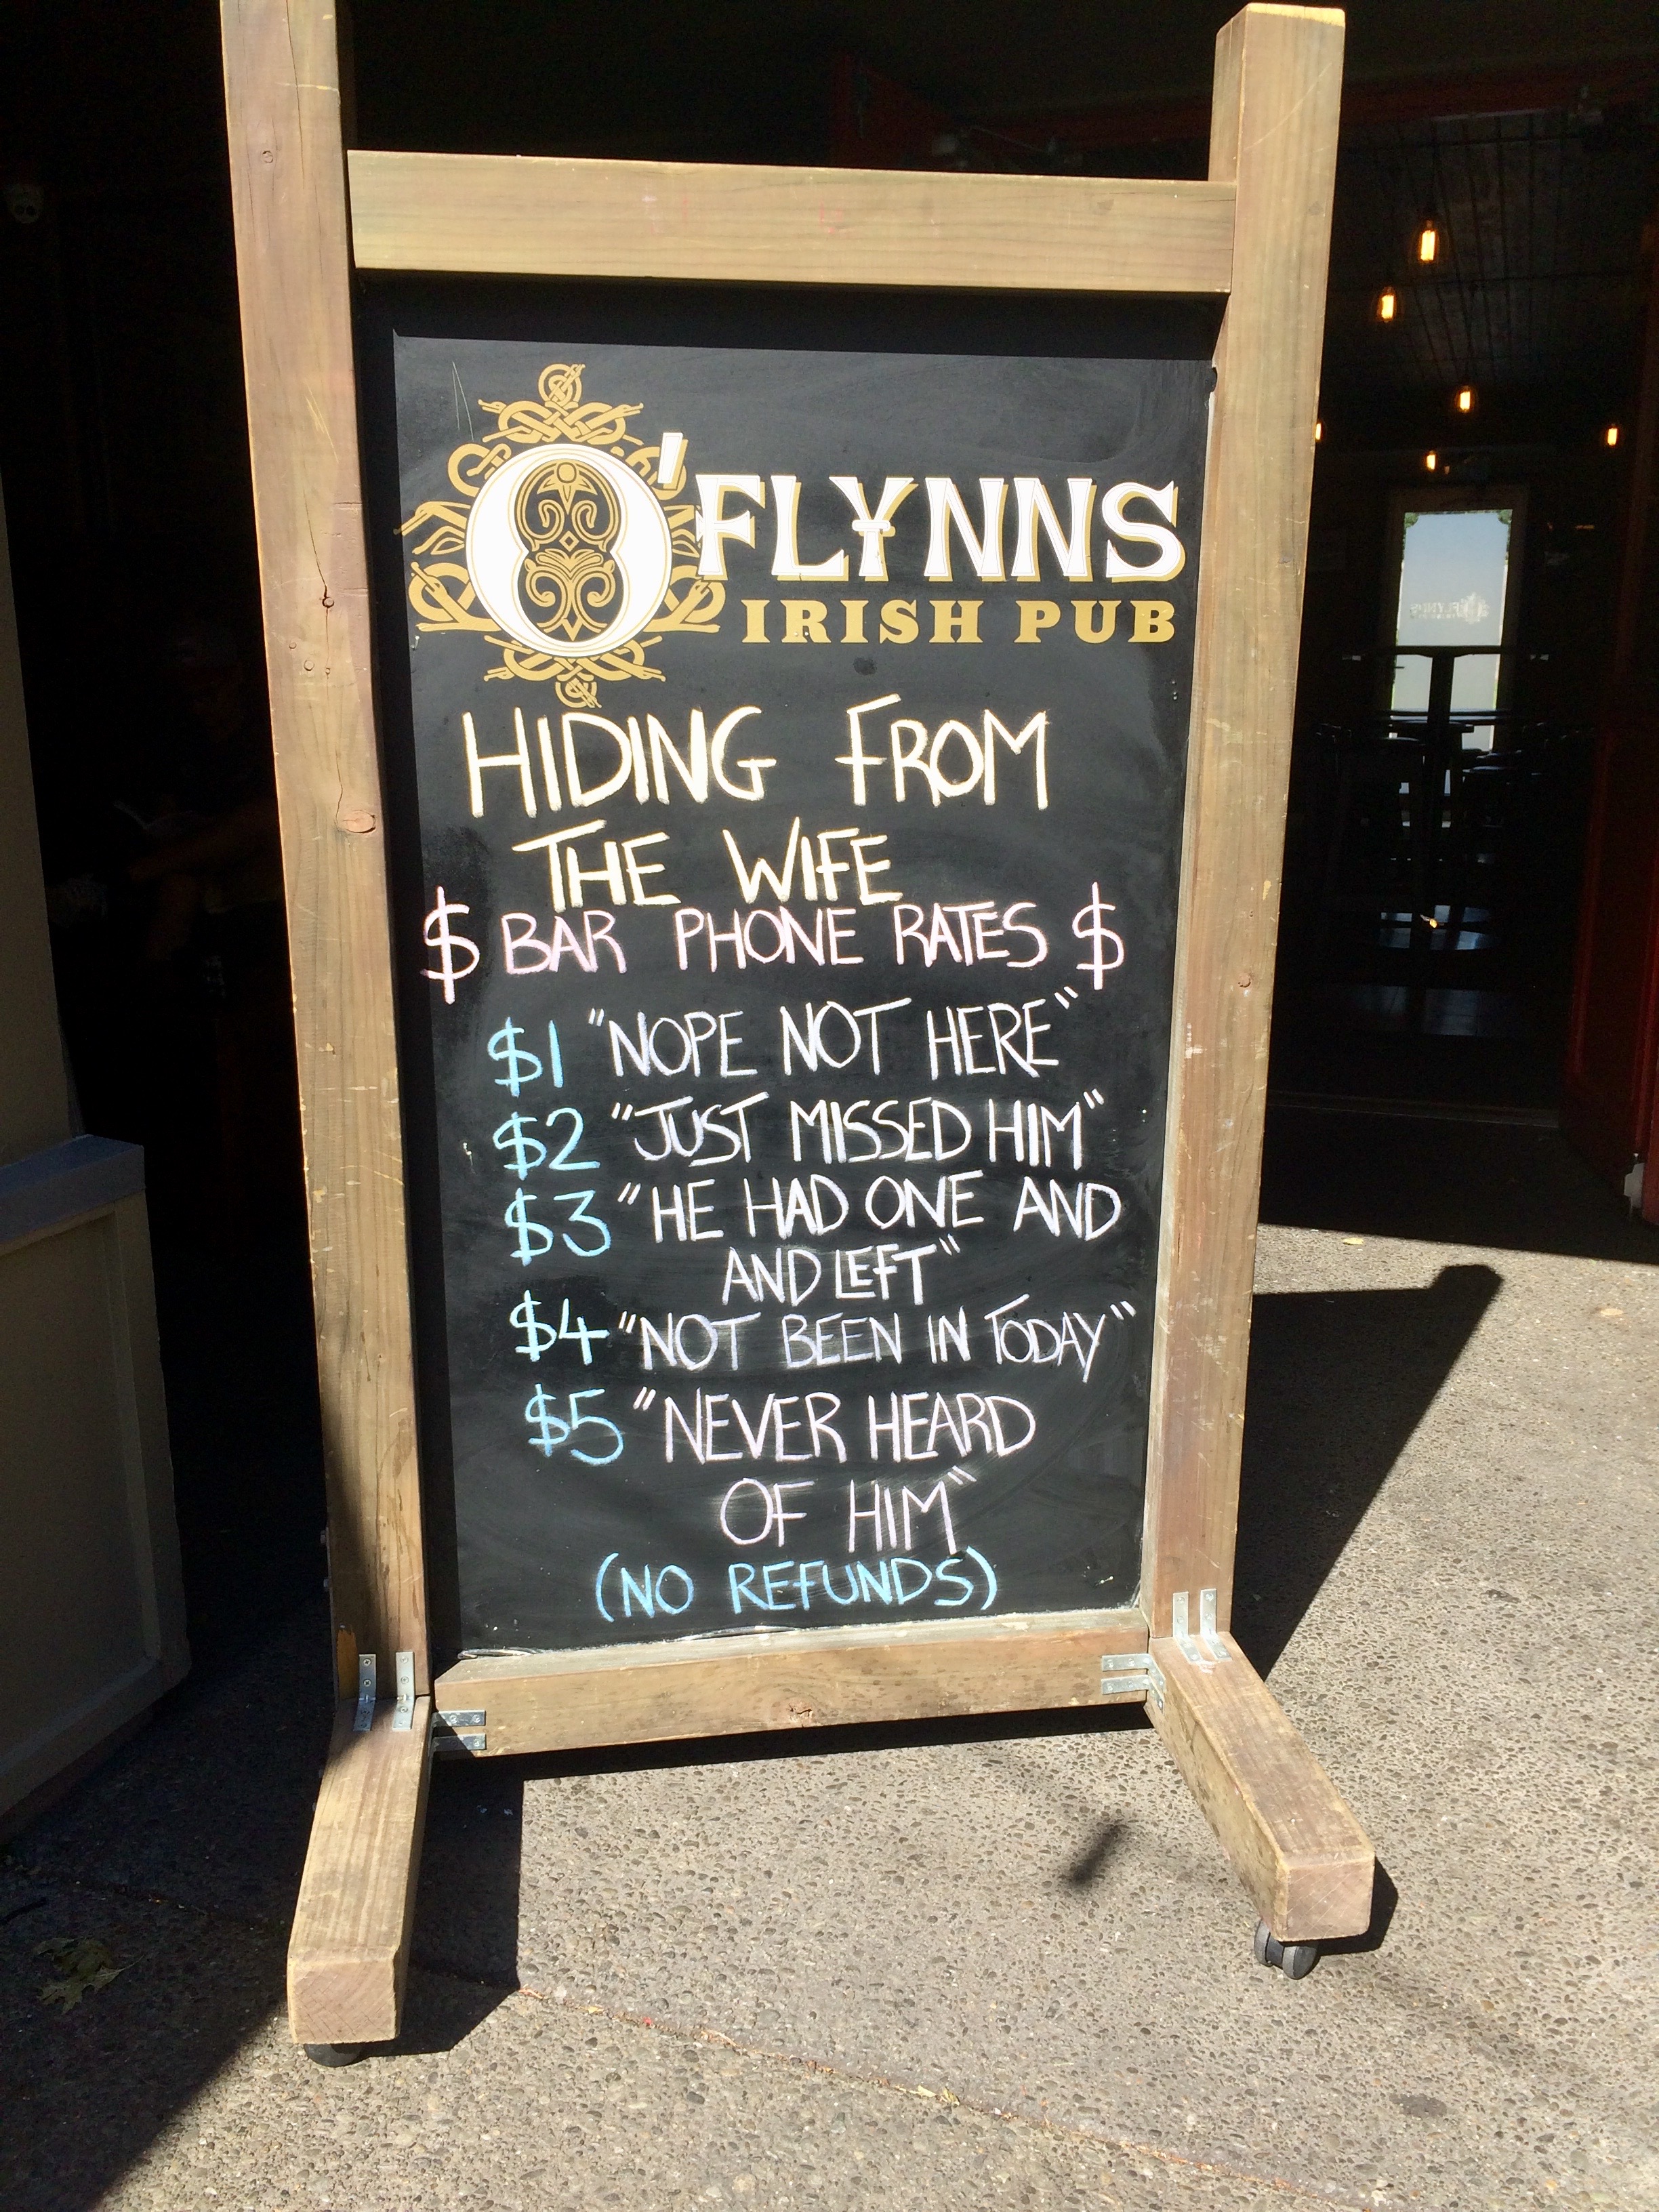 O'FLYNNS
IRISH PUB
HIDING FROM
THE WIFE
$ BAR PHONE RATES $
$1 "NOPE NOT HERE"
$2 "JUST MISSED HIM"
$3 "HE HAD ONE AND
AND LEFT"
$4 "NOT BEEN IN TODAY"
$5 "NEVER HEARD
OF HIM"
(NO REFUNDS)